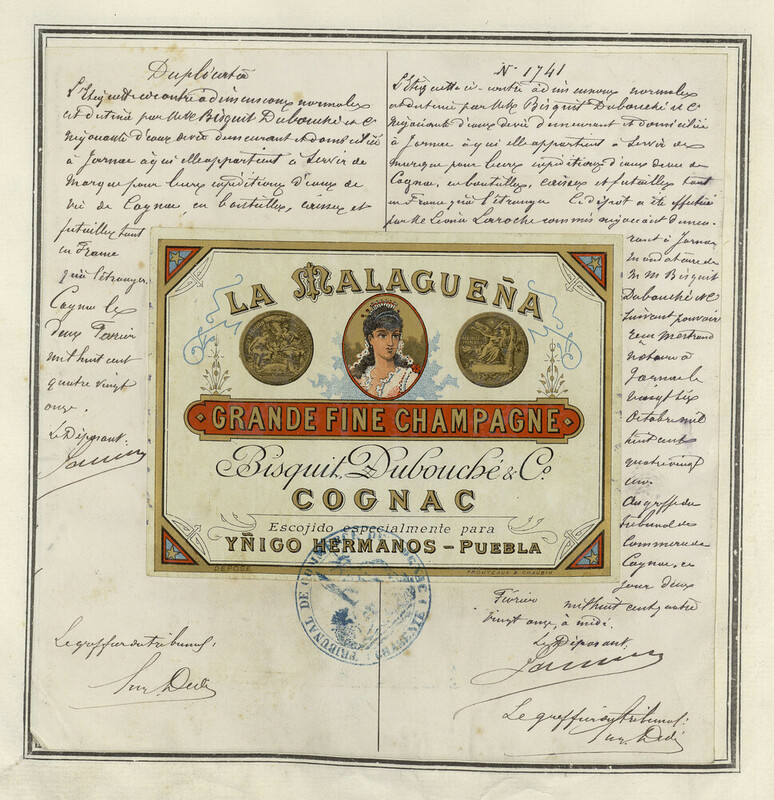 Duplicata
L'Etiquette ci contre à dimensions normales
est destiné par MM. Bisquit Dubouché et Cie
négociants d'eaux de vie demeurant et domiciliés
à Jarnac à qui elle appartient à servir de
marque pour leurs expéditions d'eaux de
vie de Cognac, en bouteilles, caisses et
futailles tant
en France
qu'à l'étranger.
Cognac le
deux Février
mil huit cent
quatre vingt
onze.
Le Déposant:
Le greffier du tribunal,
N° 1741
L'Etiquette ci-contre à dimensions normales
est destiné par MM. Bisquit Dubouché et Cie
négociants d'eaux de vie demeurant et domiciliés
à Jarnac à qui elle appartient à servir de
marque pour leurs expéditions d'eaux de vie de
Cognac, en bouteilles, caisses et futailles tant
en France qu'à l'étranger. Le dépôt a été effectué
par M. Laroche commis négociant demeu-
rant à Jarnac
mandataire de
M.M. Bisquit
Dubouché et Cie
suivant pouvoir
notaire à
Jarnac le
vingt six
Octobre mil
huit cent
quatre vingt
un.
Au greffe du
tribunal de
Commerce de
Cognac, ce
jour deux
Février mil huit cent quatre
vingt onze, à midi.
Le Déposant:
Le greffier du tribunal:
LA MALAGUEÑA
GRANDE FINE CHAMPAGNE
Bisquit, Dubouché & Co.
COGNAC
Escojido especialmente para
YÑIGO HERMANOS – PUEBLA
DÉPOSÉ
TRIBUNAL DE COMMERCE DE COGNAC